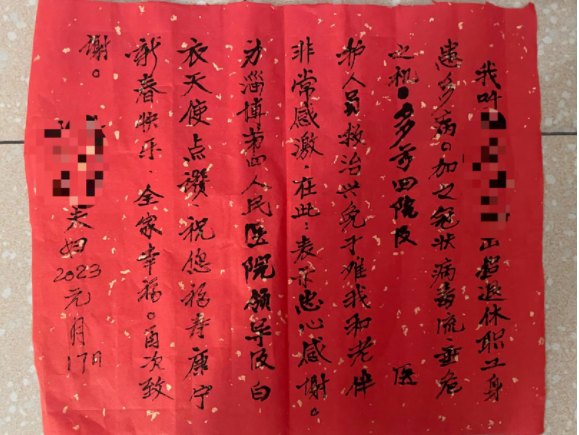 我叫山铝退休职工身
患多病。加之冠状病毒流.垂危
之机.多亏四院及医
护人员救治兴免于难我和老伴
非常感激.在此:表示忠心感谢。
为淄博第四人民医院领导及白
衣天使点讚.祝您福寿康宁
新春快乐.全家幸福。再次致
谢。
夫妇2023元月17日